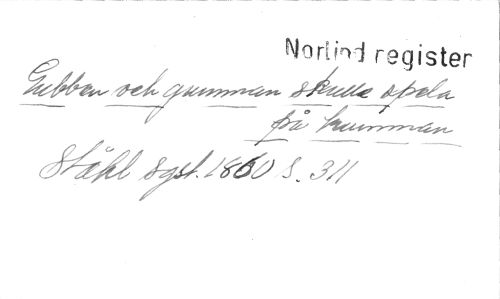 Norlind register
Gubben och gumman skulle spela
på trumman
Ståhl sgsl. 1860 s. 311